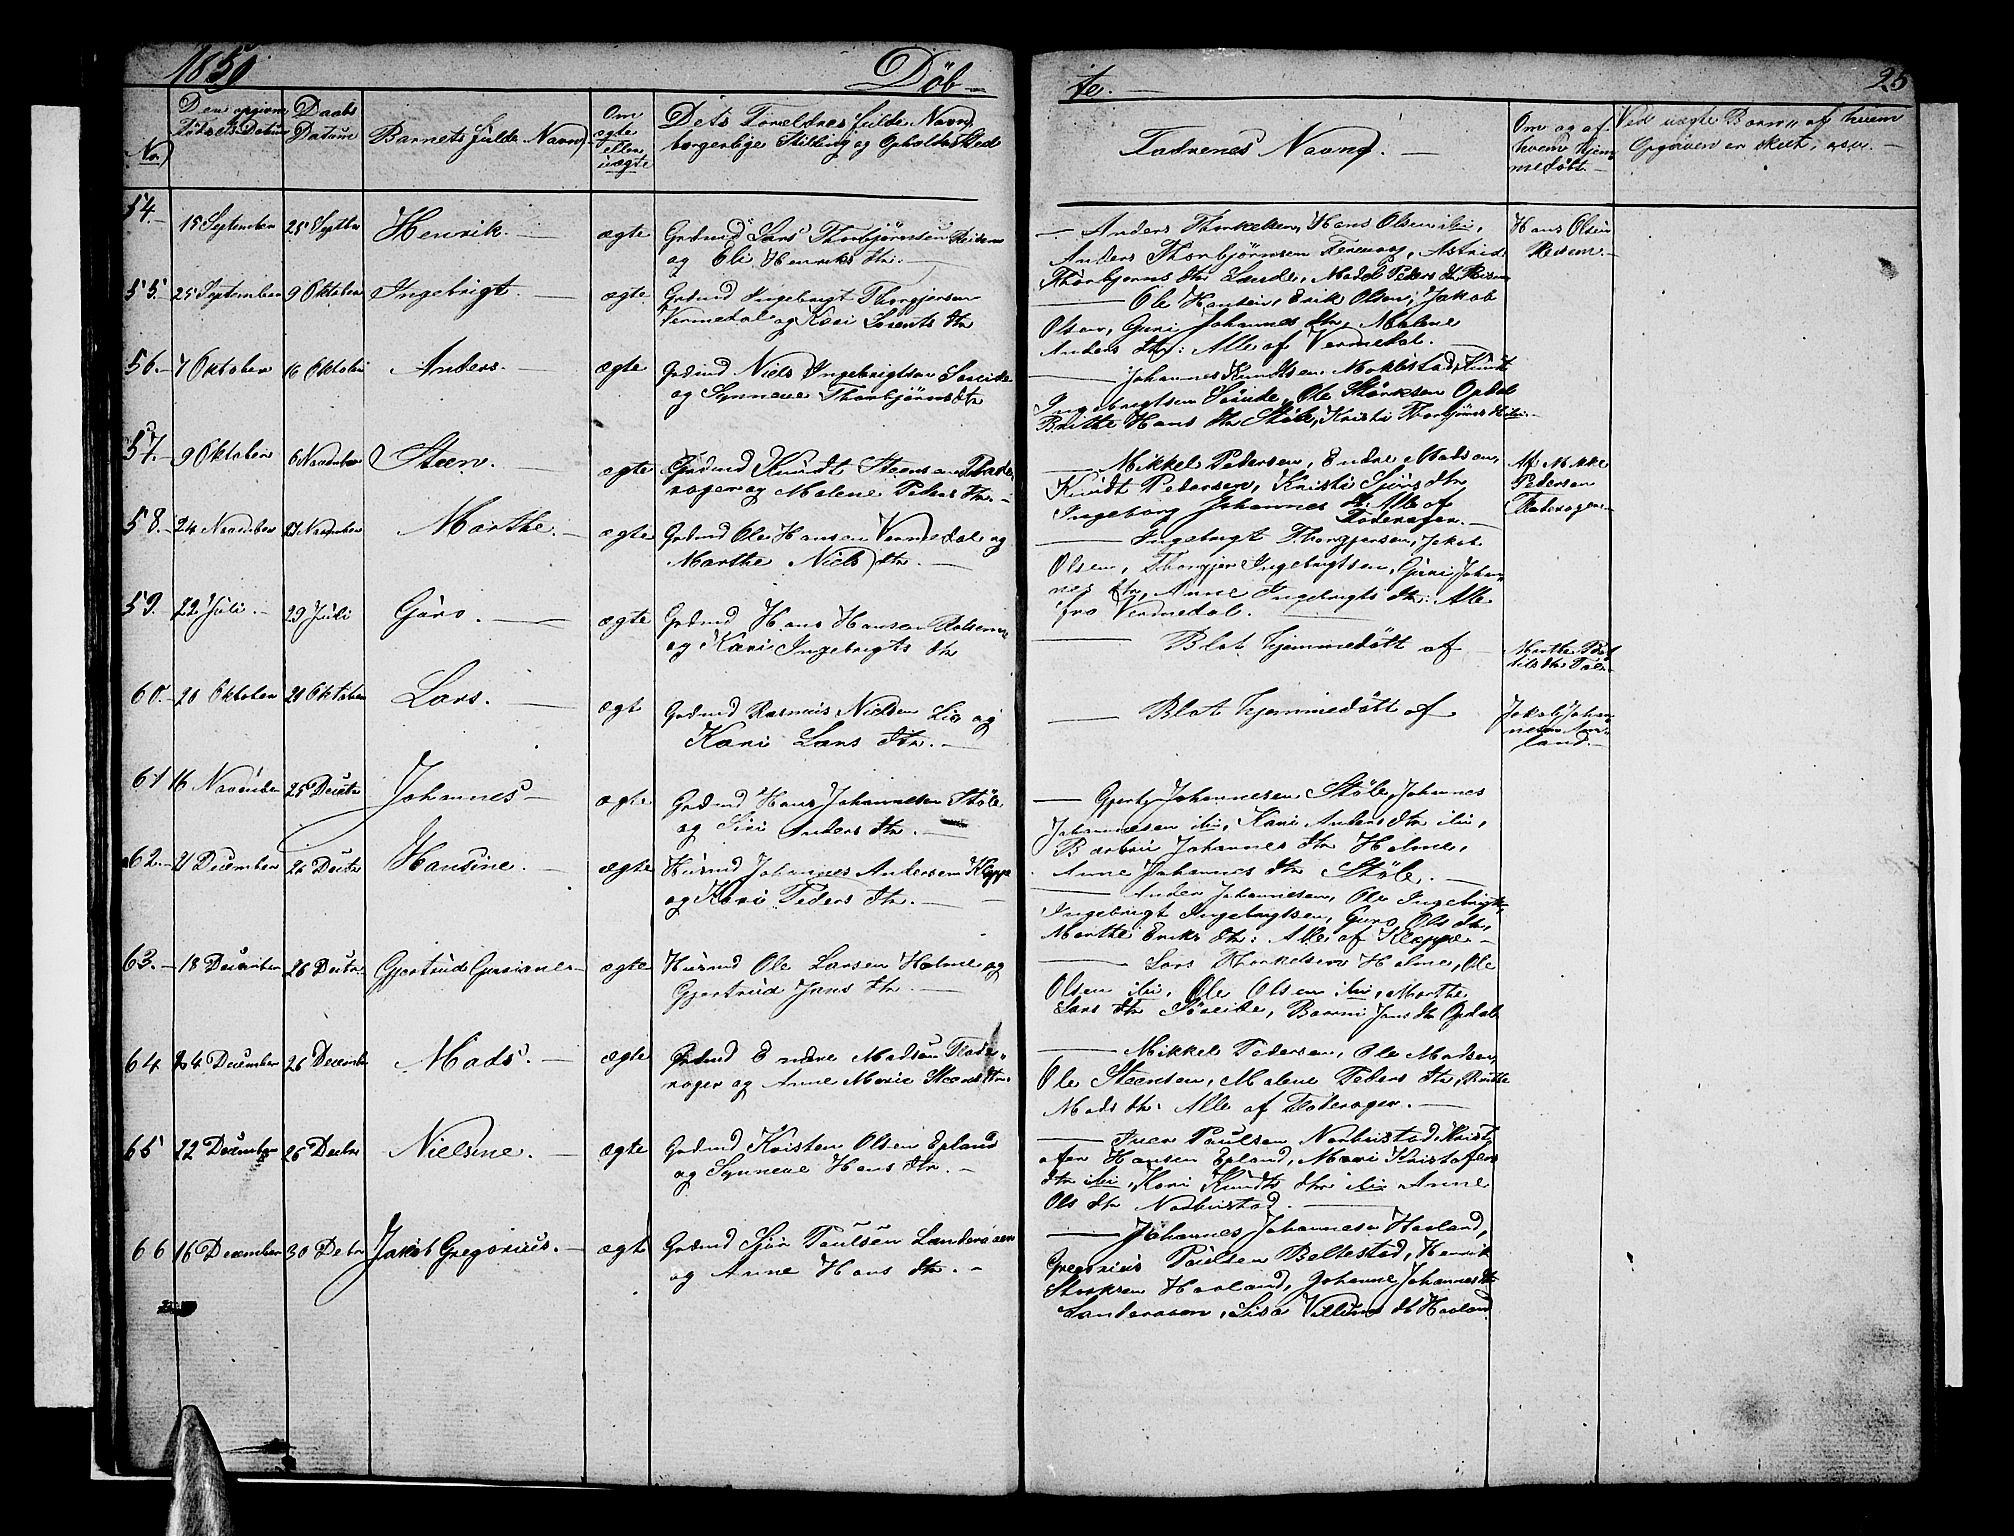 1850 Döb-
te. - 25
No
Den opgivne Födsels Datum
Daabs Datum
Barnets fulde Navn
Om ægte eller uægte
Dets Forældres fulde Navn, borgerlige Stilling og Opholds Sted
Fadrenes Navne. -
Om og af hvem hjemmedöbt -
Ved uægte Börn, af hvem Opgiven er skeet, osv. -
54. - 15 September 25 Septbr Henrik. - ægte Grdmd Lars Thorbjørnsen Reisem
og Eli Henriks dtr. -
- Anders Thorkelsen, Hans Olsen ibi,
Anders Thorbjørnsen Ferevaag, Astrid
Thorbjørns dtr Lande, Madel Peders dtr Reisem
Hans Olsen
Reisem. -
55. 25 September 9 Oktober Ingebrigt. - ægte Grdmd Ingebrigt Thorgjersen
Vermedal og Kari Lorents dtr
- Ole Hansen, Erik Olsen, Jakob
Olsen, Guri Johannes dtr, Malene
Anders dtr: Alle af Vermedal. -
56. - 7 Oktober 16 Oktober Anders. - ægte Grdmd Niels Ingebrigtsen Söreide
og Synneve Thorbjørns dtr
- Johannes Knudtsen Moklistad, Knut
Ingebrigtsen Söreide, Ole Størksen Opdal
Brithe Hans dtr Støle, Kristi Thorbjörns dtr ibi. -
57. - 9 Oktober 6 November Steen. - ægte Grdmd Knudt Steensen Flade-
rager og Malene Peders dtr. -
- Mikkel Pedersen, Endre Madsen,
Knudt Pedersen, Kristi Sjurs dtr
Ingeborg Johannes dtr: Alle af
Floderager. -
Af Mikkel
Pedersen
Floderager. -
58. - 24 November 27 November Marthe. - ægte Grdmd Ole Hansen Vermedal og
Marthe Niels dtr. -
- Ingebrigt Thorgjersen, Jakob
Olsen, Thorgjer Ingebrigtsen, Guri Johan-
nes dtr, Anne Ingebrigts dtr: Alle
fra Vermedal. -
59. 22 Juli. - 29 Juli Guro. - ægte Grdmd Hans Hansen
og Kari Ingebrigts dtr
- Blot hjemmedöbt af
Marthe
60. - 20 Oktober 20 Oktober Lars. - ægt Grdmd Rasmus Nielsen Lio og
Kari Lars dtr. -
- Blot hjemmedöbt af
Jakob Johan-
nesen Aar-
land. -
61 16 November 25 Decbr Johannes - ægte Grdmd Hans Johannesen Støle
og Siri Anders dtr. -
- Gjert Johannesen Støle, Johannes
Johannesen ibi, Kari Anders dtr ibi,
Barbri Johannes dtr Holme,
Anne Johannes dtr Støle. -
62. - 21 December 26 Decbr Hansine. - ægte Husmd Johannes Andersen Kleppe
og Kari Peders dtr. -
- Anders Johannesen, Ole Ingebrigts,
Ingebrigt Ingebrigtsen, Guro Ols dtr,
Marthe Eriks dtr: Alle af Kleppe -
63. - 18 December 26 Decbr Gjertrud Gurine - ægte Husmd Ole Larsen Holme og
Gjertrud Jans dtr. -
- Lars Thorkelsen Holme, Ole
Olsen ibi, Ole Olsen ibi, Marthe
Lars dtr Söreide, Barni Jans dtr Opdal
64 24 December 26 December Mads. - ægte Grdmd Endre Madsen Flode-
rager og Anne Marie Steens dtr.
- Mikkel Pedersen, Ole Madsen,
Ole Steensen, Malene Peders dtr, Brithe
Mads dtr: Alle af Floderager. -
65 22 December 26 Decbr Nielsine. - ægte Grdmd Kristen Olsen Epland
og Synneve Hans dtr. -
- Iver Paulsen Norbustad, Krist-
ofer Hansen Epland, Mari Kristofers
dtr ibi, Kari Knudts dtr ibi Anne
Ols dtr Norbustad. -
66 16 December 30 Debr Jakob Gregorius. - ægt Grdmd Sjur Paulsen Landeraaen
og Anne Hans dtr. -
- Johannes Johannesen Havland,
Gregorius Paulsen Beltestad, Henrik
Størksen Havland, Johanne Johannes dtr
Landeraaen, Lisa Villums dtr Havland.